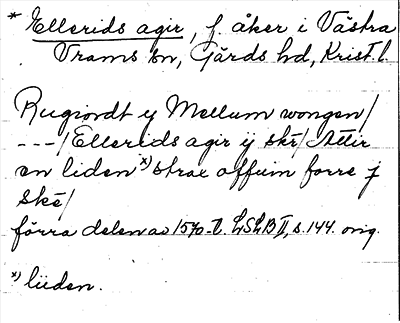 * Ellerids agir, f. åker i Västra
Vrams sn, Gärds hd, Krist. l.
Rugiordt ij Mellum wongen/
---/Ellerids agir ij skè/Attir
en liden *) strax offuim forre j
skè/
förra delen av 1570-t. LSLB II, s. 144. orig.
*) lüden.